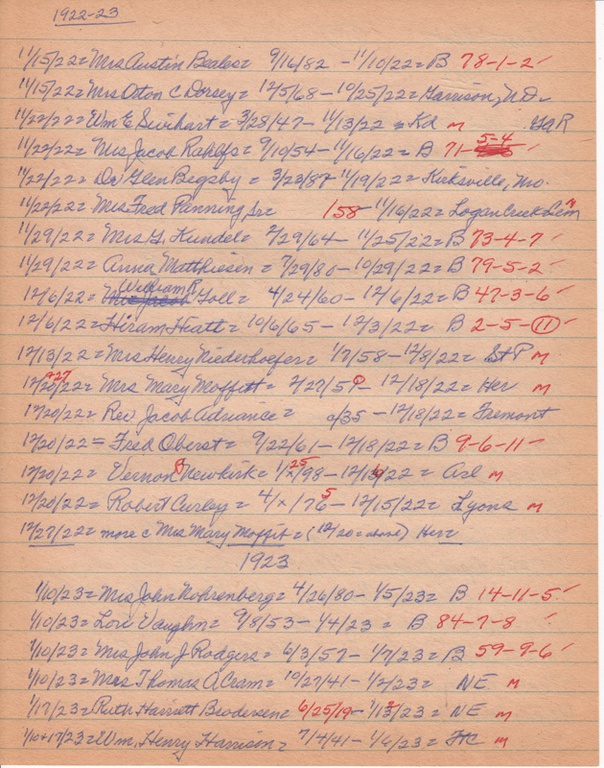 1922-23
11/15/22 = Mrs Austin Beales = 9/16/82 - 11/10/22 = B 78-1-2 ✓
11/15/22 = Mrs Otton C Dorsey = 12/5/68 - 10/25/22 = Garrison, N.D.
11/22/22 = Wm E Swihart = 3/28/47 - 11/13/22 = Kd M GAR
11/22/22 = Mrs Jacob Rahlfs = 9/10/54 - 11/16/22 = B 71-5-4 ✓
11/22/22 = Dr Glen Begsby = 3/23/87 11/19/22 = Kirksville, Mo.
11/22/22 = Mrs Fred Panning Sr = 158 11/16/22 = Logan Creek Cem M
11/29/22 = Mrs G. Kundel = 2/29/64 - 11/25/22 = B 73-4-7 ✓
11/29/22 = Anna Matthiesen = 7/29/80 - 10/29/22 = B 79-5-2 ✓
12/6/22 = William R Goll = 4/24/60 - 12/6/22 = B 47-3-6 ✓
12/6/22 = Hiram Hiatt = 10/6/65 - 12/3/22 = B 2-5-11 ✓
12/13/22 = Mrs Henry Niederhoefer = 1/7/58 - 12/8/22 = St P M
12/20/22 +27 = Mrs Mary Moffitt = 2/27/59 - 12/18/22 = Her M
12/20/22 = Rev Jacob Adriance = c/35 - 12/18/22 = Fremont
12/20/22 = Fred Oberst = 9/22/61 - 12/18/22 = B 9-6-11 ✓
12/20/22 = Vernon Newkirk = 1/25/98 - 12/16/22 = Arl M
12/20/22 = Robert Curley = 4/x/75 - 12/15/22 = Lyons M
12/27/22 = more c Mrs Mary Moffitt = (12/20 = above) Her
1923
1/10/23 = Mrs John Nohrenberg = 4/26/80 - 1/5/23 = B 14-11-5 ✓
1/10/23 = Lori Vaughn = 9/8/53 - 1/4/23 = B 84-7-8 ✓
1/10/23 = Mrs John J Rodgers = 6/3/57 - 1/7/23 = B 59-9-6 ✓
1/10/23 = Mrs Thomas A Cram = 10/27/41 - 1/2/23 = NE M
1/17/23 = Ruth Harriett Brodersen = 6/25/19 - 1/13/23 = NE M
1/10+17/23 = Wm. Henry Harrison = 7/4/41 - 1/6/23 = M